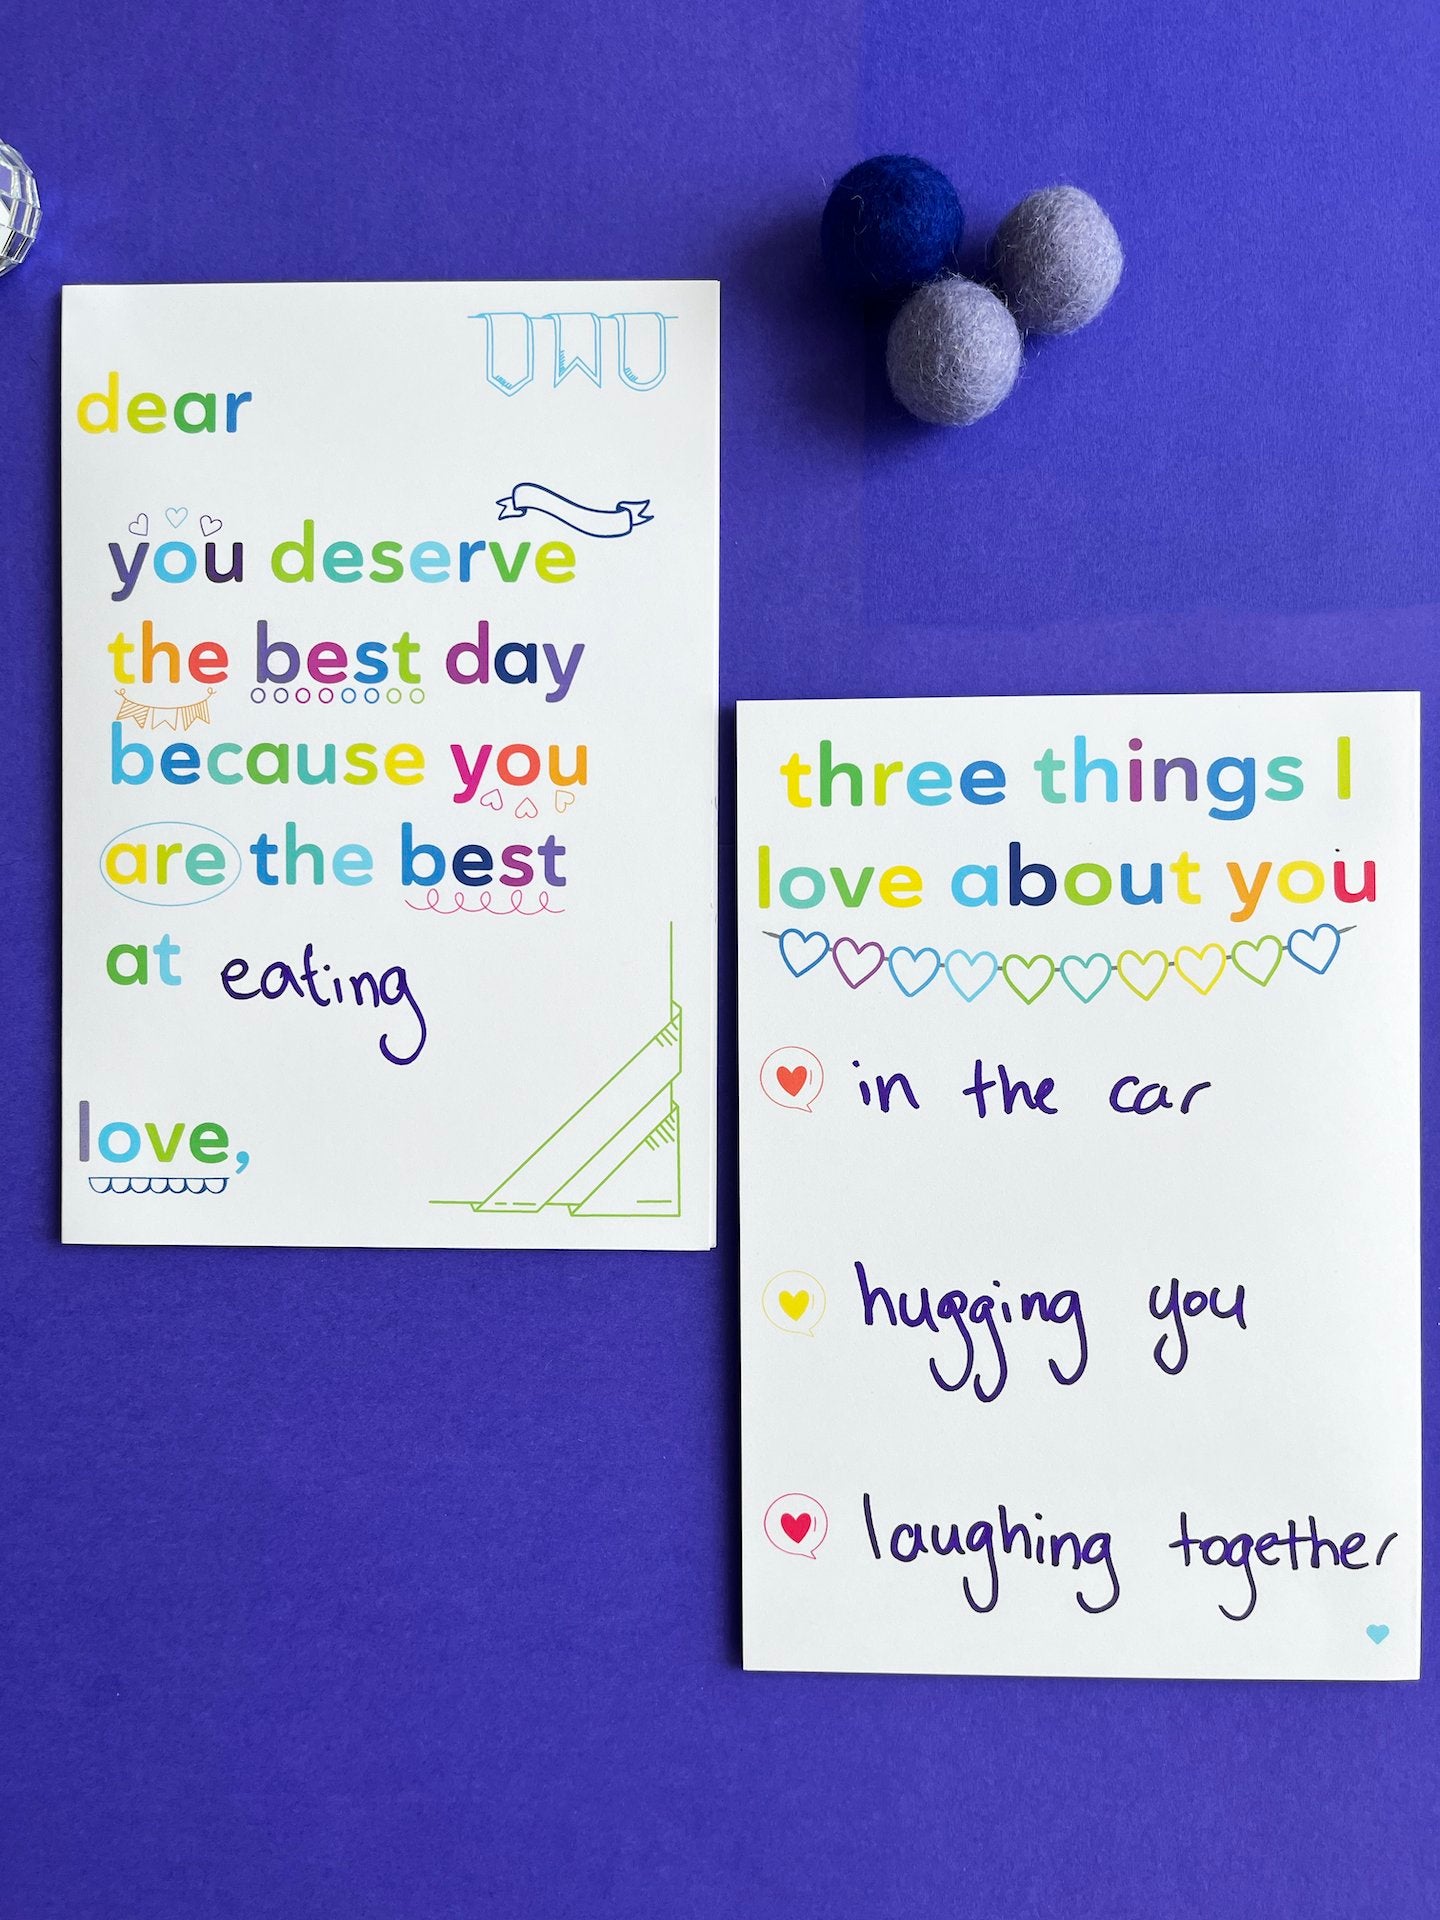 dear
you deserve
the best day
because you
are the best
at eating
love,
three things I
love about you
in the car
hugging you
laughing together